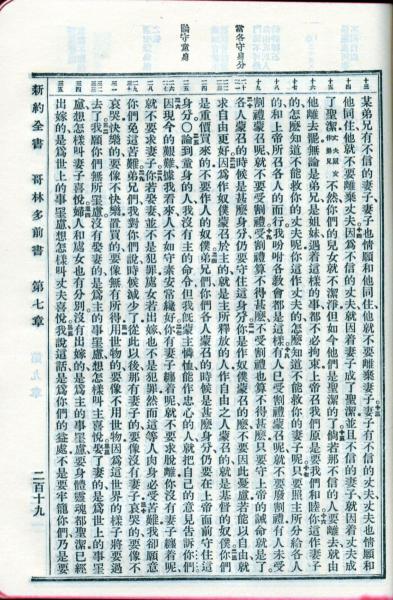 當各守身分
論守童身
某弟兄有不信的妻子妻子也情願和他同住他就不要離棄妻子妻子有不信的丈夫丈夫也情願和
他同住他就不要離棄丈夫因爲不信的丈夫就因着妻子成了聖潔並且不信的妻子就因着丈夫成
了聖潔不然你們的兒女就不潔淨但如今他們是聖潔的了倘若那不信的人要離去就由
他離去罷無論是弟兄是姐妹遇着這樣的事都不必拘束上帝召我們原是要我們和睦你這作妻子
的怎麼知道不能救你的丈夫呢你這作丈夫的怎麼知道不能救你的妻子呢只要照主所分給各人
的和上帝所召各人的而行我吩咐各教會都是這樣有人已受割禮蒙召呢就不要廢割禮有人未受
割禮蒙召呢就不要受割禮受割禮算不得甚麼不受割禮也算不得甚麼只要守上帝的誡命就是了
各人蒙召的時候是甚麼身分仍要守住這身分你是作奴僕蒙召的麼不要因此憂慮若能以自由就
求自由更好因爲作奴僕蒙召於主的就是主所釋放的人作自由之人蒙召的就是基督的奴僕你們
是重價買來的不要作人的奴僕弟兄們你們各人蒙召的時候是甚麼身分仍要在上帝面前守住這
身分○論到童身的人我沒有主的命令但我旣蒙主憐恤能作忠心的人就把自己的意見告訴你們
因現今的艱難據我看來人不如守素安常纔好你有妻子纏着呢就不要求脫離你沒有妻子纏着呢
就不要求妻子你若娶妻並不是犯罪處女若出嫁也不是犯罪然而這等人肉身必受苦難我却願意
你們免這苦難弟兄們我對你們說時候減少了從此以後那有妻子的要像沒有妻子哀哭的要像不
哀哭快樂的要像不快樂置買的要像無有所得用世物的要像不用世物因爲這世界的樣子將要過
去了我願你們無所罣慮沒有娶妻的是爲主的事罣慮想怎樣叫主喜悅娶了妻的是爲世上的事罣
慮想怎樣叫妻子喜悅婦人和處女也有分別沒有出嫁的是爲主的事罣慮要身體靈魂都聖潔已經
出嫁的是爲世上的事罣慮想怎樣叫丈夫喜悅我說這話是爲你們的益處不是要牢籠你們乃是要
新約全書 哥林多前書 第七章 二百十九